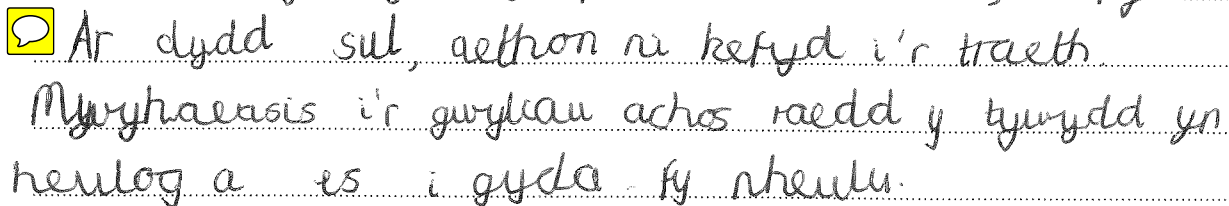 Ar dydd sul, aethon ni hefyd i'r traeth.
Mywyhaeasis i'r gwyliau achos raedd y tywydd yn
heulog a es i gyda fy nheulu.